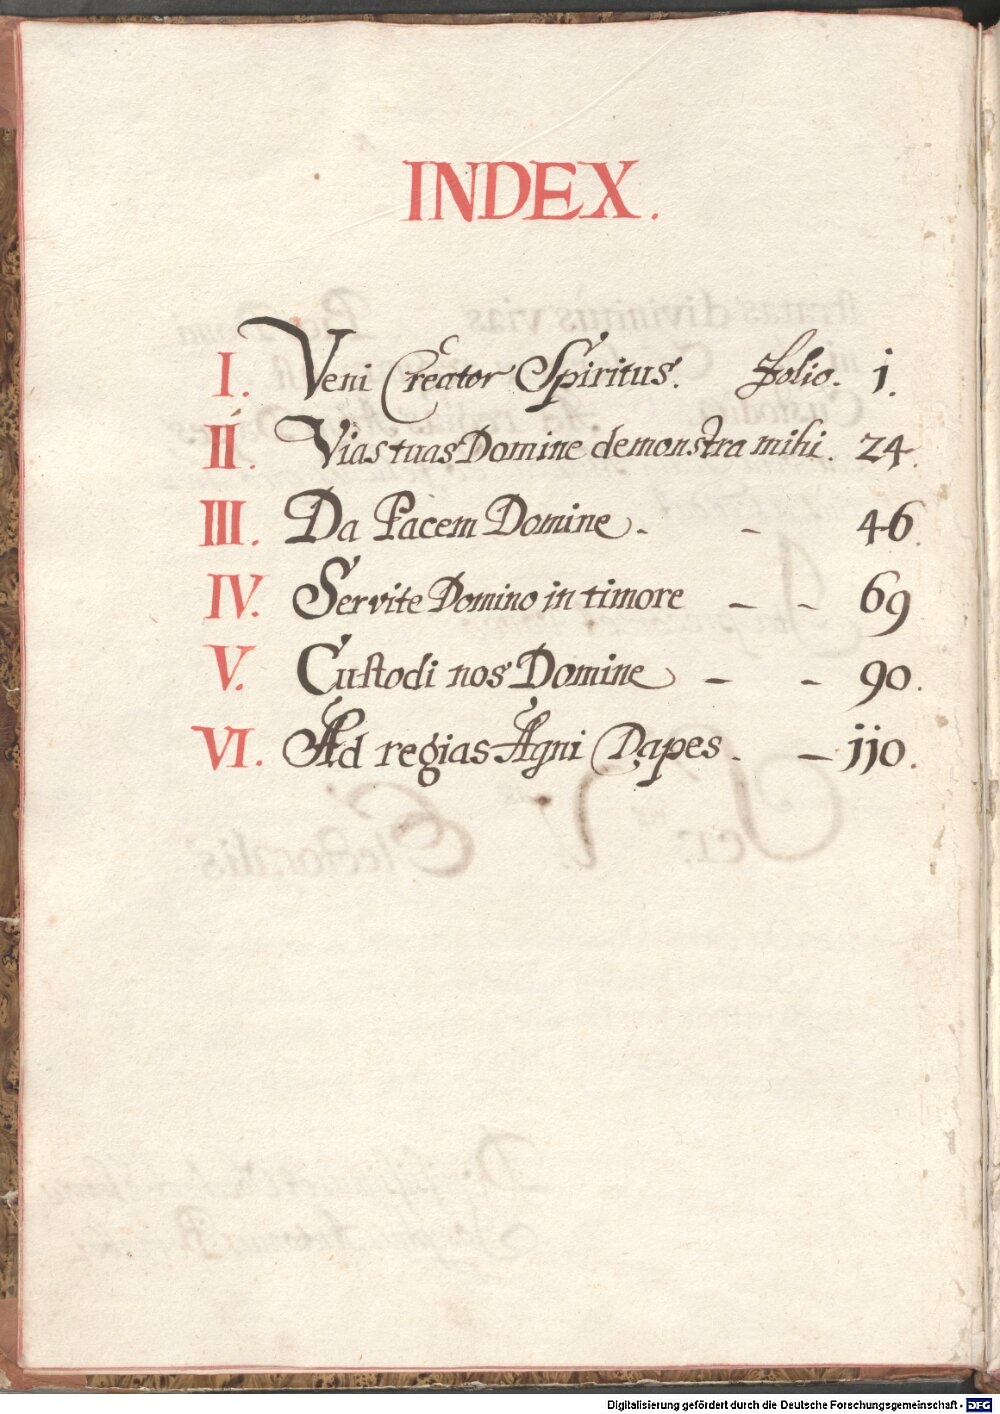 INDEX.
I. Veni Creator Spiritus. folio. 1.
II. Vias tuas Domine demonstra mihi. 24.
III. Da Pacem Domine. - 46.
IV. Servite Domino in timore - - 69
V. Custodi nos Domine - - 90.
VI. Ad regias Agni Dapes. - 110.
Digitalisierung gefördert durch die Deutsche Forschungsgemeinschaft - DFG